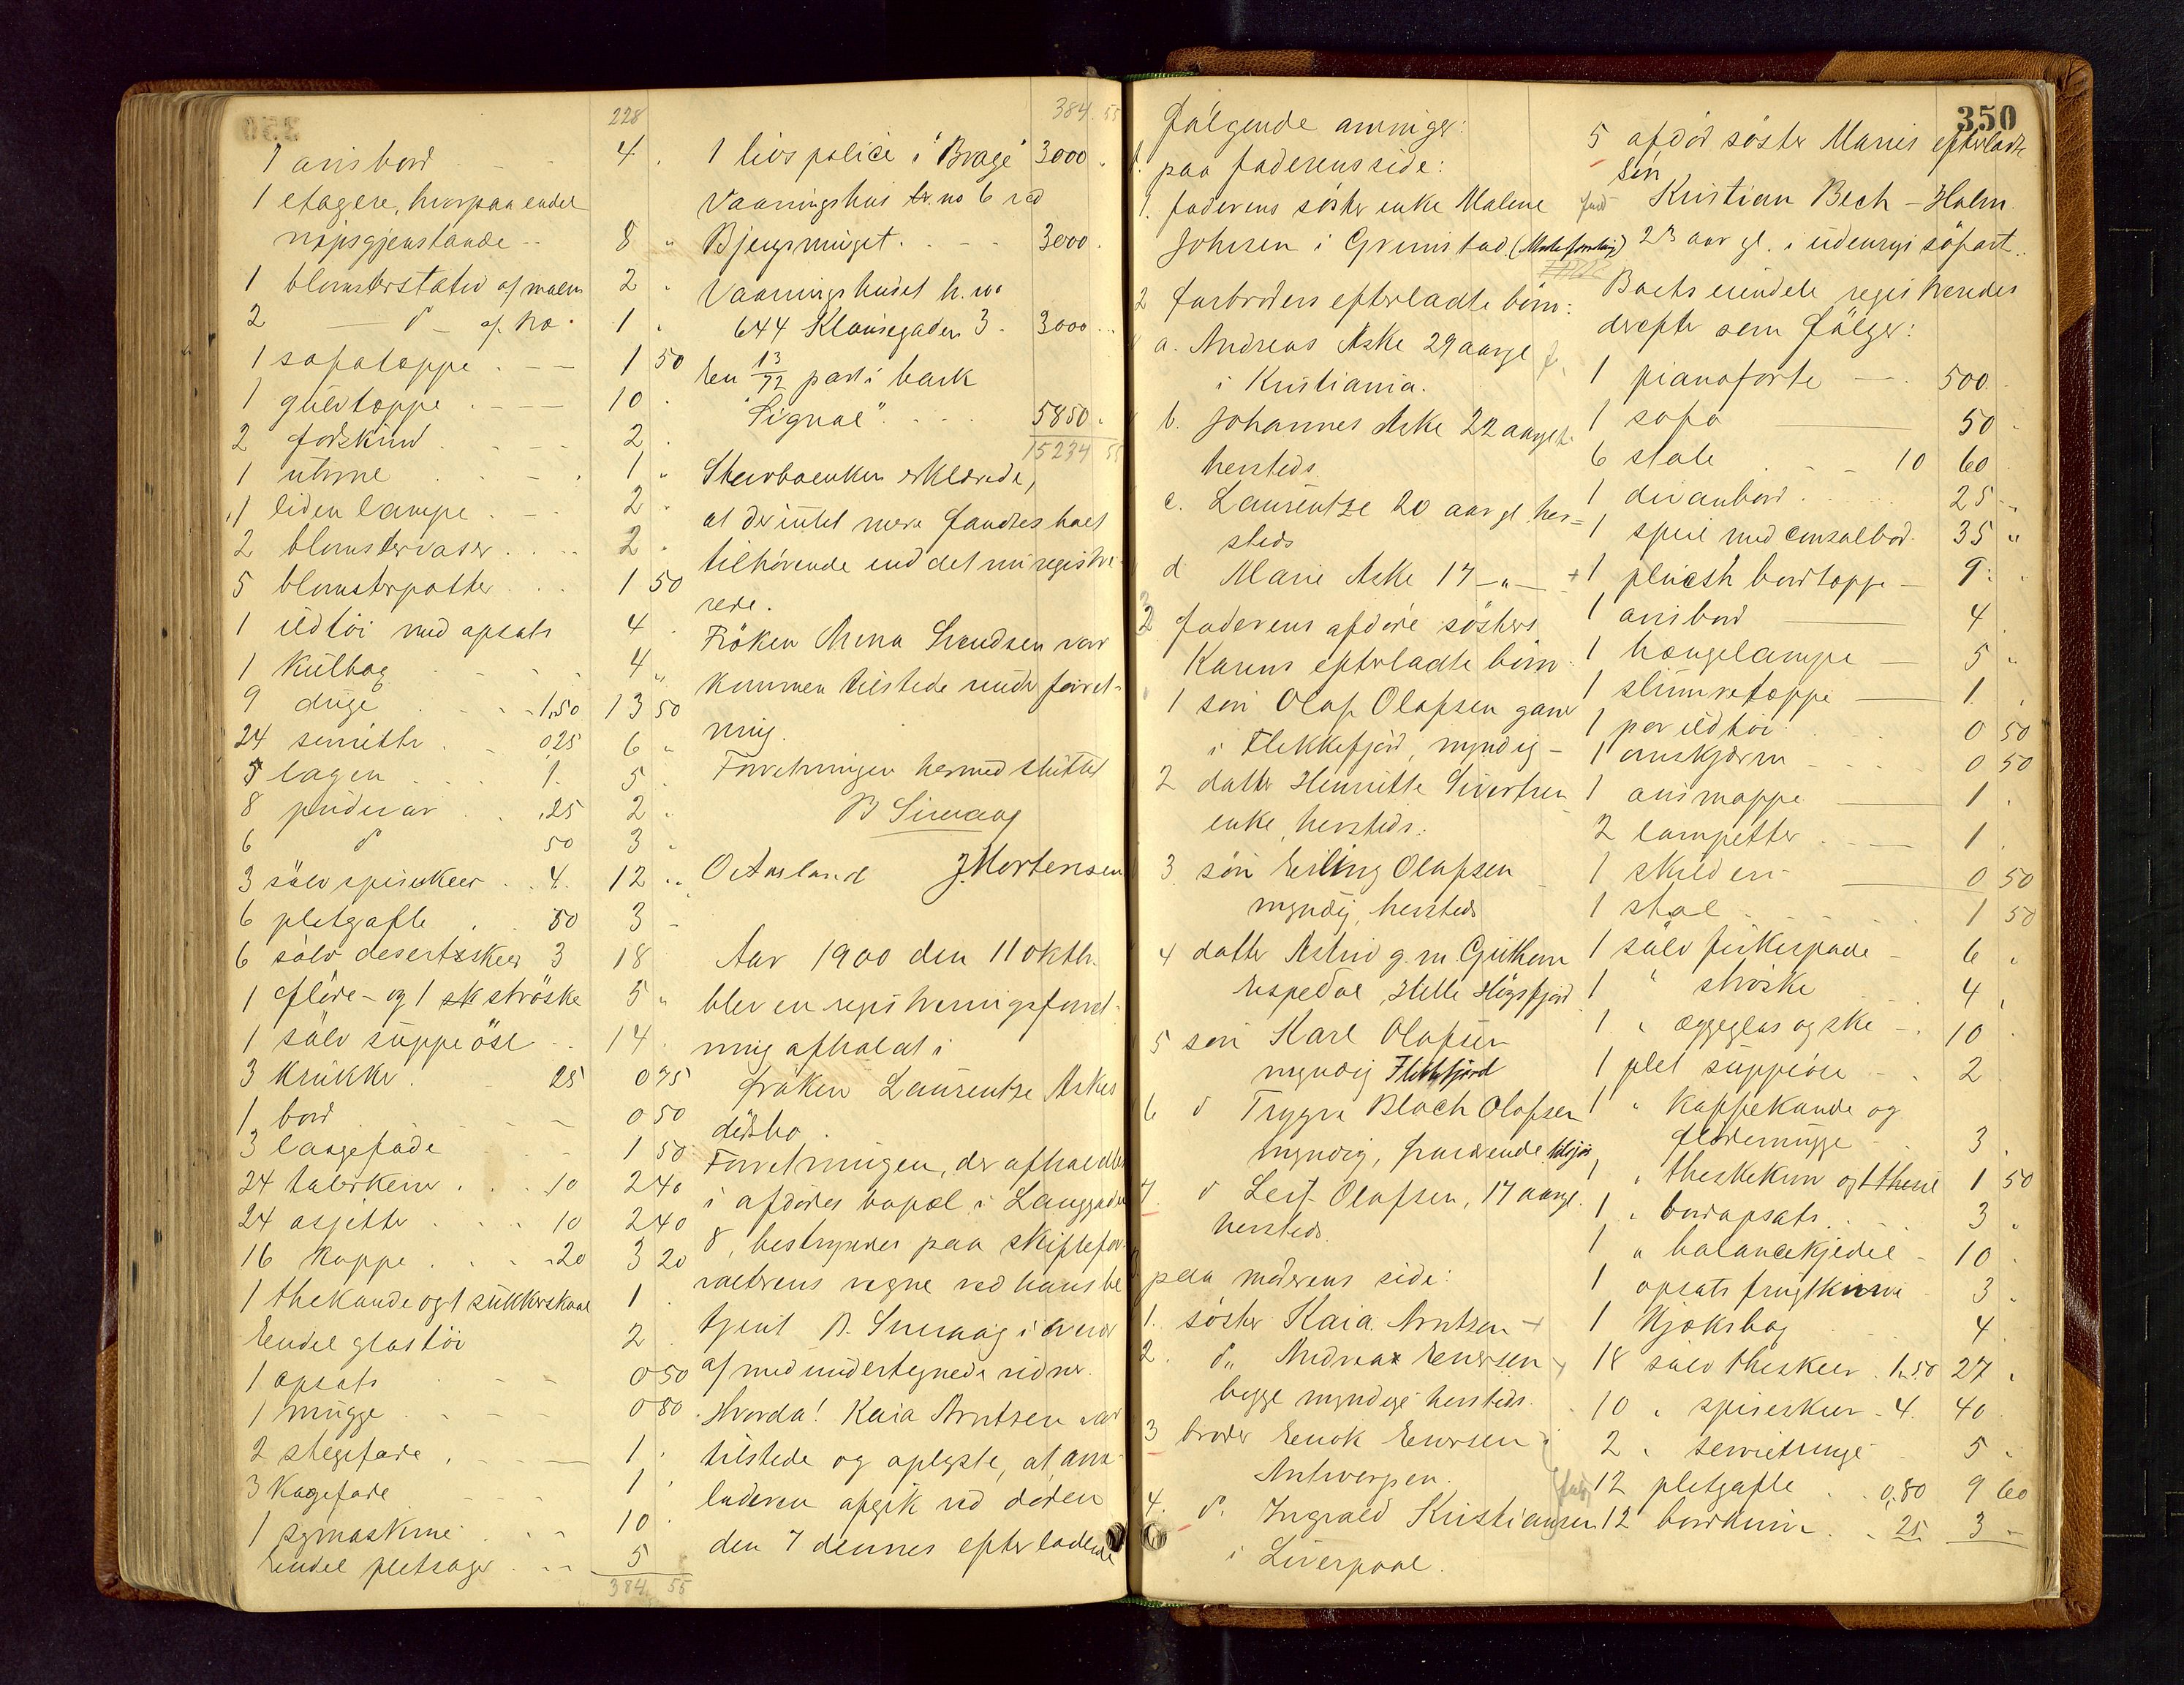 228
1 avisbord - - - 4 "
1 etagere, hvorpaa endel
nipsgjenstande - - 8 "
1 blomsterstativ af malm 2 "
2 — d — af træ 1 "
1 sofatæppe . - — 1 50
1 gulvtæppe . - — 10 .
2 forskind . - - 2 .
1 uhrne . - - 1 "
1 liden lampe . - - 2 .
2 blomstervaser . . . 2 "
5 blomsterpotter . . . 1 50
1 ildtöi med opsats 4 .
1 kulbox . - - 4 "
9 duge . - - 1,50 13 50
24 servietter . - 025 6 "
5 lagen . . . 1. 5 .
8 pudevar . . ,25 2 .
6 d 50 3 .
3 sölv spiseskeer . . 4. 12 "
6 pletgafle . . 50 3 -
6 sölv desertskeer 3 18
1 fløde- og 1 sk ströske 5 "
1 sölv suppeöse . . 14 .
3 krukker . - 25 0 75
1 bord . - - 0 50
3 langefade - - 1 50
24 talerkener . . . 10 2 40
24 asjetter . . . 10 2 40
16 kopper . . . 20 3 20
1 thekande og 1 sukkerskaal 1 .
Endel glastöi 2
1 opsats - - 0 50
1 mugge . - - 0 80
2 stegefade . - — 1 .
3 kagefade - - 1 .
1 symaskine . . - 10 .
Endel pletsager . - - 5
384 55
384. 55
1 livspolice i "Brage" 3000 "
Vaaningshus tr. no 6 ved
Bjergsminget . - - 3000 .
Vaaningshuset h. no
644 Klausegaden 3 - 3000 ..
En 13/72 part i bark
"Signal" . . . 5850 .
15234 55
Stervboenken erklærede,
at der intet mere fandtes boet
tilhörende end det nu registre-
rede.
Fröken Anna Svendsen var
kommen tilstede under forret-
ning.
Forretningen hermed sluttet
B Sirevaag
O. Aarland J. Mortensen
Aar 1900 den 11 oktbr.
blev en registreringsforret-
ning afholdt i
fröken Laurentze Askes
dödsbo.
Forretningen, der afholdtes
i afdödes bopæl i Langgaden
8, bestyredes paa skiftefor-
valterens vegne ved hans be
tjent B. Sirevaag i overvær
af medundertegnede vidner.
Hvorda! Kaia Arntsen var
tilstede og oplyste, at arve-
laderen afgik ved döden
den 7 dennes efterladende
350
fölgende arvinger:
1. paa faderens side:
1. faderens söster enke Malene
Johnsen i Grimstad.
2 farbroders efterladte börn:
a. Andreas Aske 29 aar gl
i Kristiania.
b. Johannes Aske 22 aar gl.
hersteds
c. Laurentze 20 aar gl her-
steds
d Marie Aske 17 — " —
3 faderens afdöde sösters
Karens efterladte börn:
1 sön Olaf Olafsen
i Flekkefjord, myndig -
2 datter Henriette Sivertsen
enke, hersteds.
3 sön Erling Olafsen
myndig, hersteds
4 datter Astrid g. m. Guthorm
Espedal, Helle Högsfjord
5 sön Karl Olafsen
myndig Flekkefjord
6 d Trygve Bloch Olafsen
myndig, fraværende tilsjös
7 d Leif Olafsen, 17 aar gl.
hersteds.
paa moderens side:
1. söster Kaia Arntsen
2. d" Andrea Enersen
begge myndige hersteds.
3 broder Enok Enersen i
Antwerpen.
4. d". Ingvald Kristiansen
i Liverpool.
5 afdöd söster Maries efterladte
sön
Kristian Bech-Holm
23 aar gl. i udenrigs söfart.
Boets eiendele registreredes
derefter som fölger:
1 pianoforte — . 500 .
1 sofa — 50 .
6 stole . - - 10 60
1 divanbord . . . 25 "
1 speil med consolbord. 35 "
1 plüsch bordtæppe — 9 .
1 avisbord — 4 .
1 hængelampe — 5 "
1 slumretæppe — 1 .
1 par ildtöi . . . 0 50
1 ovnskjærm - - - 0 50
1 avismappe — 1 .
2 lampetter . - — 1 .
1 skilderi — 0 50
1 stol . - - - 1 50
1 sölv fiskespade - 6 "
1 " ströske . . . 4 "
1 " æggeglas og ske - . 10 .
1 plet suppeöse - . 2 .
1 " kaffekande og
flödemugge - . 3 .
1 " theskekurv og 1 thesil 1 50
1 " bordopsats . . . 3 "
1 " balancekjedel - 10 .
1 opsats frugtkurv 3 "
1 Kjøksbog . . . 4 .
18 sölv theskeer . 1,50 27 .
10 " spiseskeer - 4. 40
2 " servietringe 5 .
12 pletgafle . . 0,80 9 60
12 bordknive . . 25 3 -